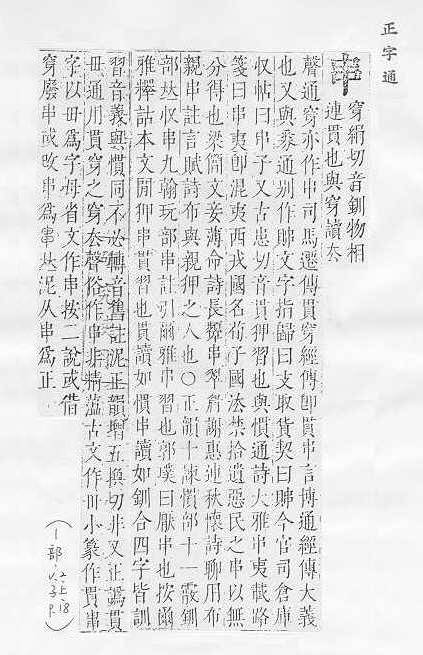 正字通
串
穿絹切音釧物相
連貫也與穿讀去
聲通穿亦作串司馬遷傳貫穿經傳卽貫串言博通經傳大義
也又與豢通圳作賗文字指歸曰支取貨契曰賗今官司倉庫
収帖曰串子又古患切音貫狎習也與慣通詩大雅串夷載路
箋曰串夷卽混夷西戎國名荀子國法禁拾遺惡民之串以無
分得也梁簡文妾薄命詩長顰串翠眉謝惠連秋懷詩聊用布
親串註言賦詩布與親狎之人也○正韻十諫慣部十一霰釧
部𠀤収串九翰玩部串註引爾雅串習也郭璞曰厭串也按爾
雅釋詁本文閑狎串貫習也貫讀如慣串讀如釧合四字皆訓
習音義與慣同不必轉音舊註泥正韻增五換切非又正譌貫
毌通用貫穿之穿去聲俗作串非精薀古文作毌小篆作貫串
字以毌爲字母省文作串按二說或借
穿廢串或改串爲𠁼𠀤泥从串爲正
(丨部
子上
P.18)